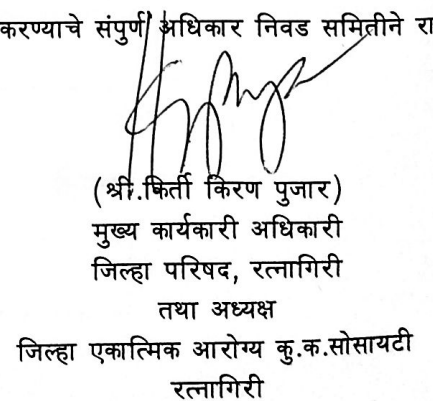 करण्याचे संपुर्ण अधिकार निवड समितीने रा
(श्री.किर्ती किरण पुजार)
मुख्य कार्यकारी अधिकारी
जिल्हा परिषद, रत्नागिरी
तथा अध्यक्ष
जिल्हा एकात्मिक आरोग्य कु.क.सोसायटी
रत्नागिरी